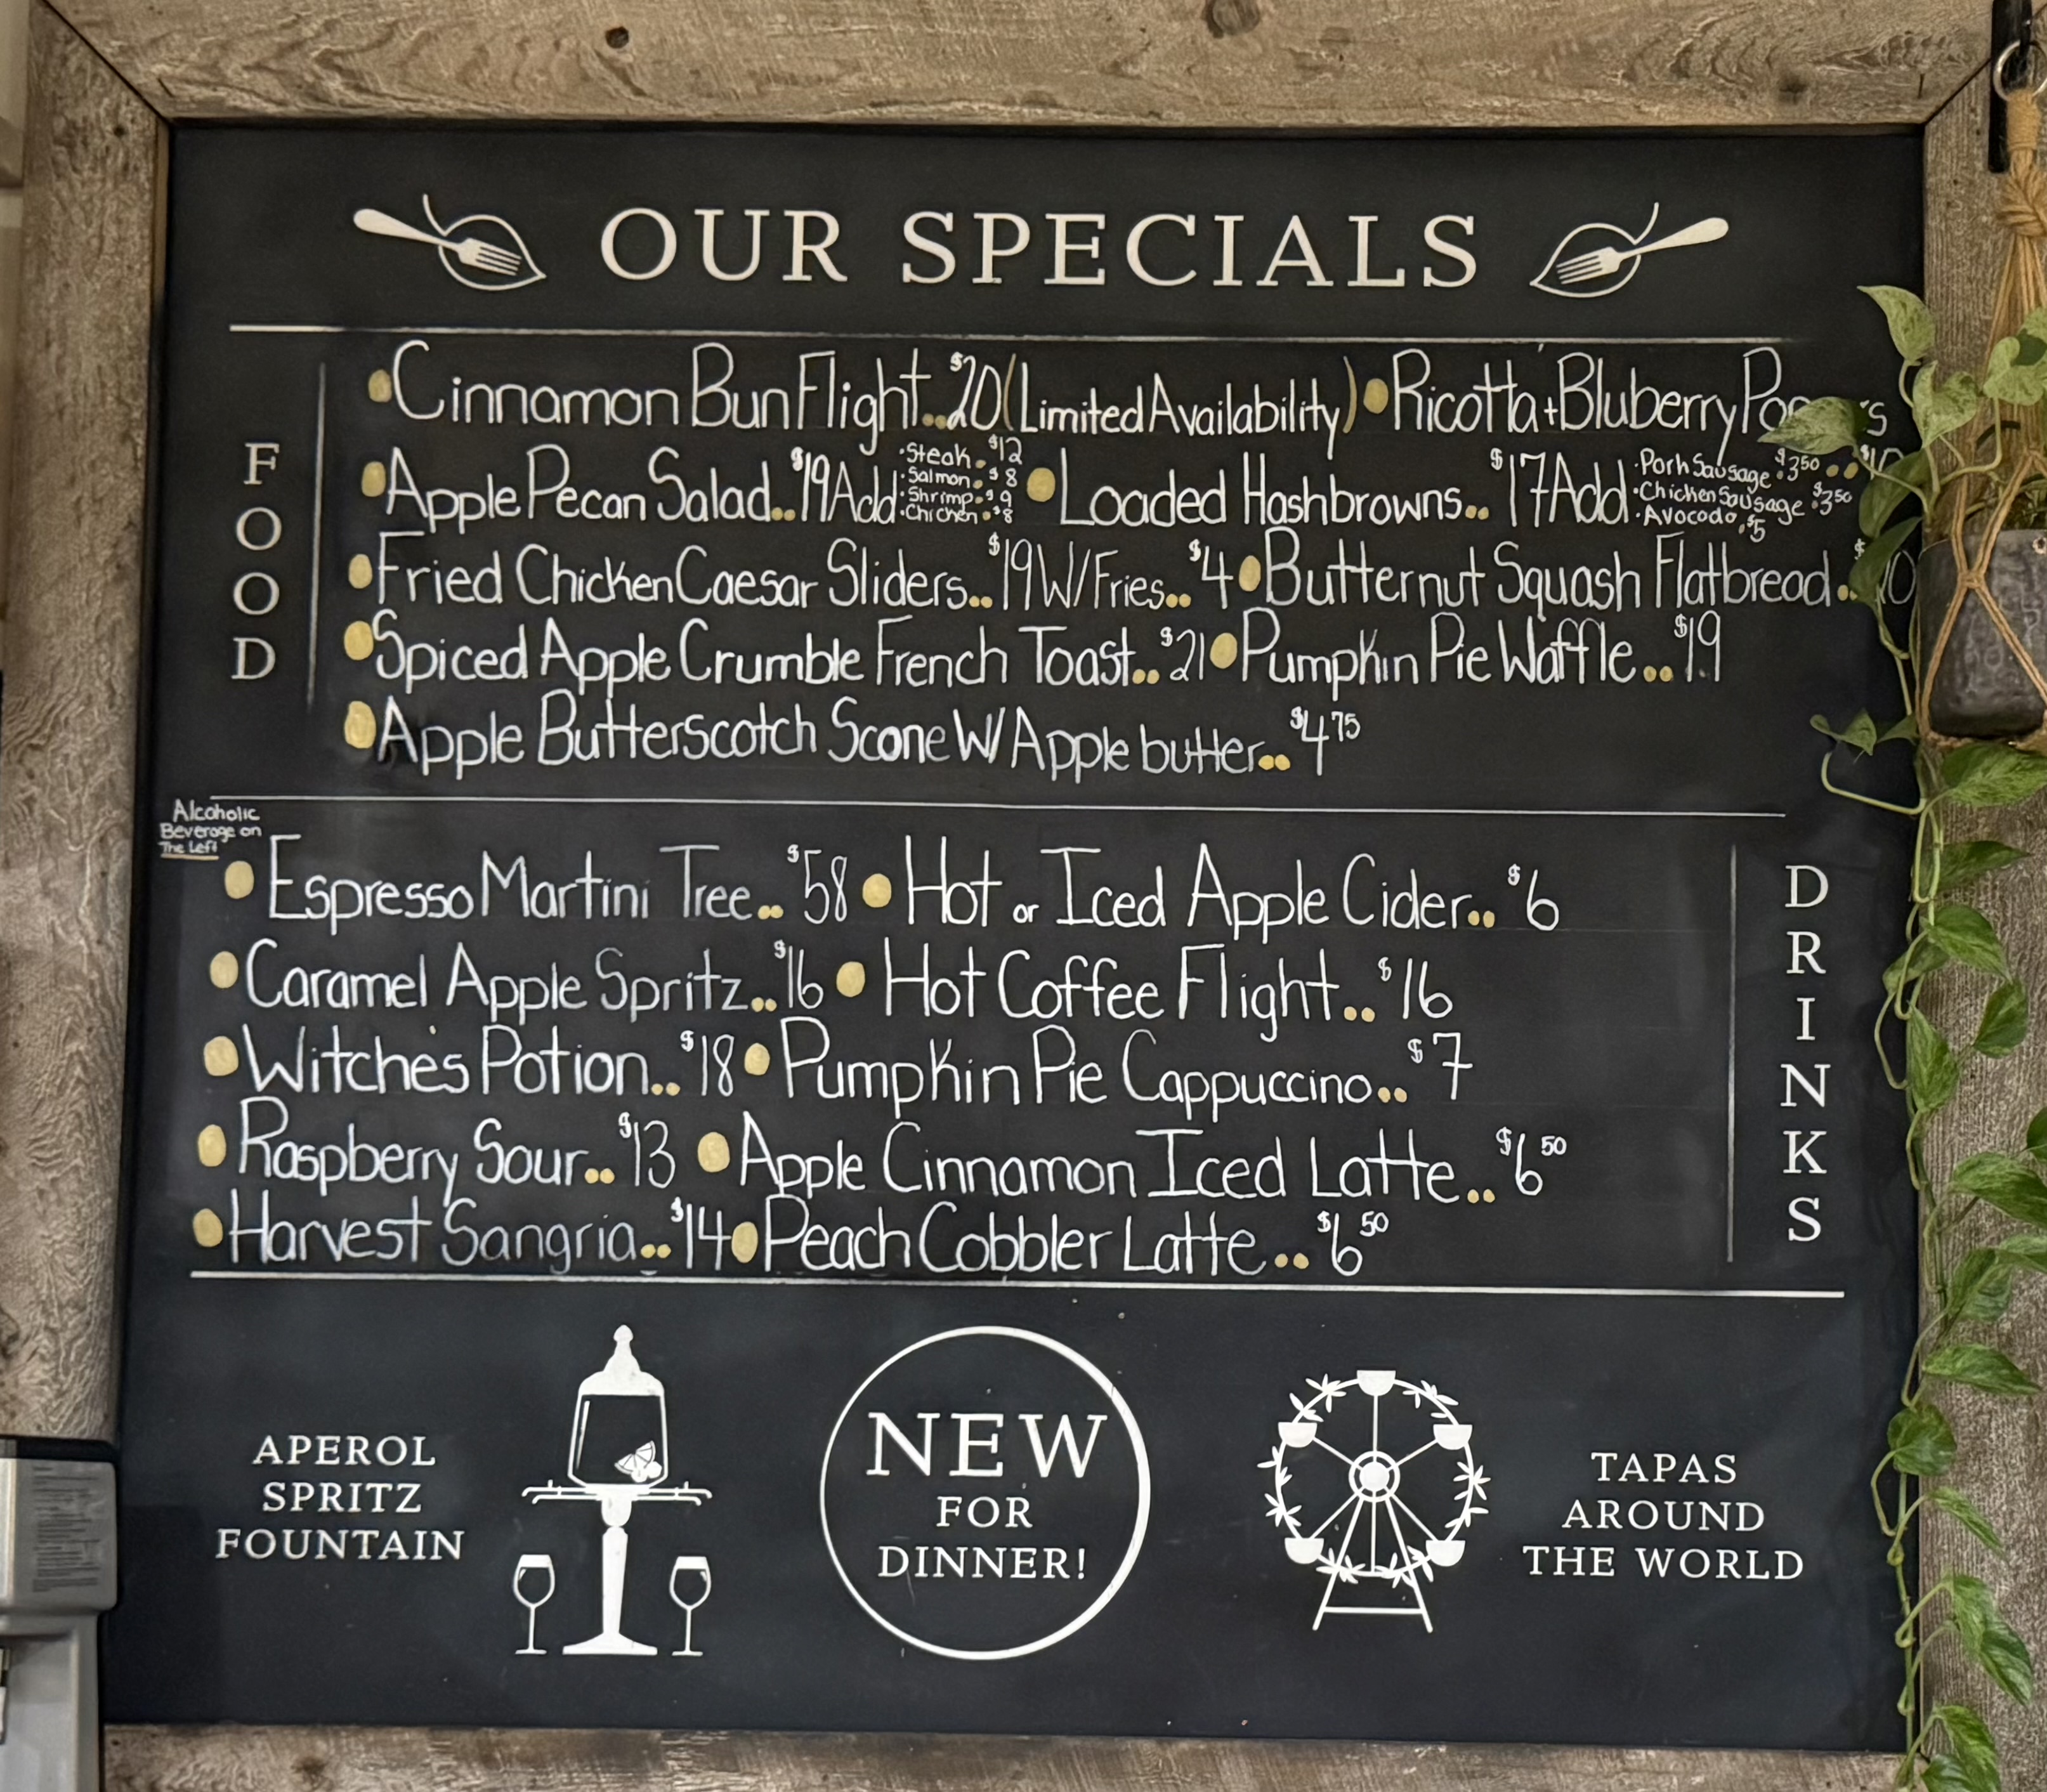 OUR SPECIALS
FOOD
•Cinnamon Bun Flight..$20 (Limited Availability) •Ricotta + Bluberry
•Apple Pecan Salad..$19 Add •Steak.$12
•Salmon.$8
•Shrimp.$9
•Chicken.$8
•Loaded Hashbrowns..$17 Add •Pork Sausage.$3.50
•Chicken Sausage.$3.50
•Avocado.$5
•Fried Chicken Caesar Sliders..$19 W/Fries..$4 •Butternut Squash Flatbread..
•Spiced Apple Crumble French Toast..$21 •Pumpkin Pie Waffle..$19
•Apple Butterscotch Scone W/ Apple butter..$4 75
Alcoholic
Beverage on
The Left
•Espresso Martini Tree..$58 •Hot or Iced Apple Cider..$6
•Caramel Apple Spritz..$16 •Hot Coffee Flight..$16
•Witche's Potion..$18 •Pumpkin Pie Cappuccino..$7
•Raspberry Sour..$13 •Apple Cinnamon Iced Latte..$6 50
•Harvest Sangria..$14 •Peach Cobbler Latte..$6 50
DRINKS
APEROL
SPRITZ
FOUNTAIN
NEW
FOR
DINNER!
TAPAS
AROUND
THE WORLD